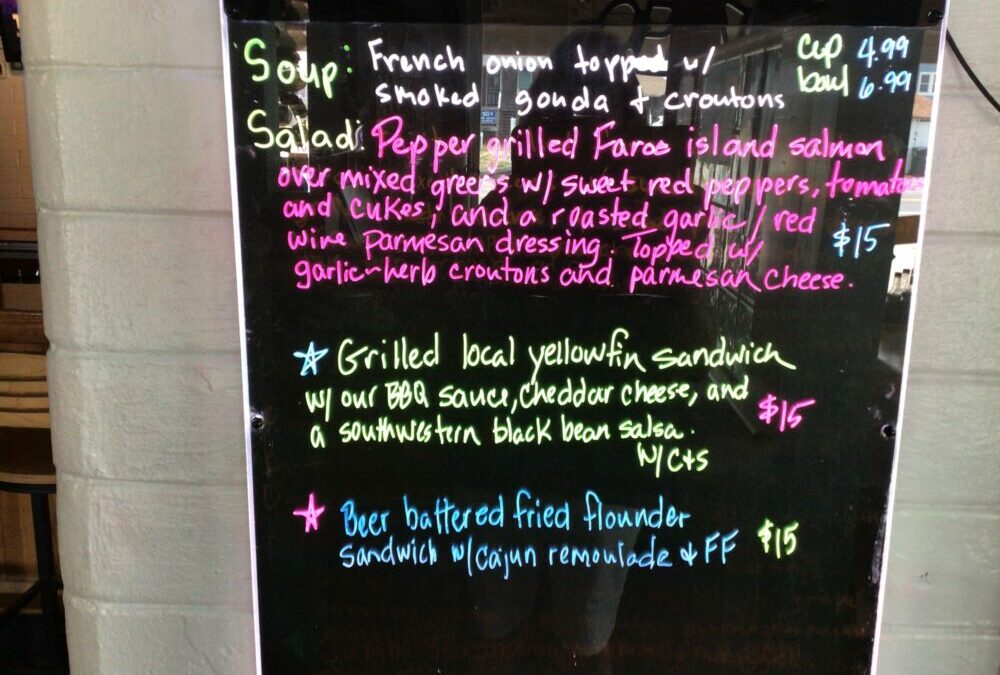 Soup: French onion topped w/ cup 4.99
smoked gouda + croutons bowl 6.99
Salad: Pepper grilled Faroe island salmon
over mixed greens w/ sweet red peppers, tomatoes
and cukes, and a roasted garlic/red
wine parmesan dressing. Topped w/ $15
garlic-herb croutons and parmesan cheese.
☆ Grilled local yellowfin sandwich
w/ our BBQ sauce, cheddar cheese, and
a southwestern black bean salsa. $15
w/ C+S
☆ Beer battered fried flounder
sandwich w/ cajun remoulade + FF $15